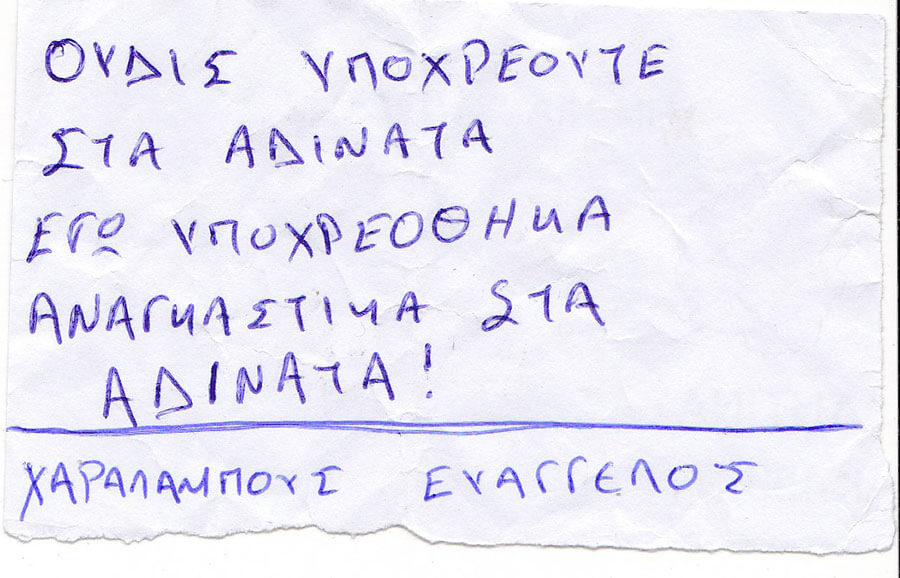 ΟΥΔΙΣ ΥΠΟΧΡΕΟΥΤΕ
ΣΤΑ ΑΔΙΝΑΤΑ
ΕΓΩ ΥΠΟΧΡΕΟΘΗΚΑ
ΑΝΑΓΚΑΣΤΙΚΑ ΣΤΑ
ΑΔΙΝΑΤΑ!
ΧΑΡΑΛΑΜΠΟΥΣ ΕΥΑΓΓΕΛΟΣ